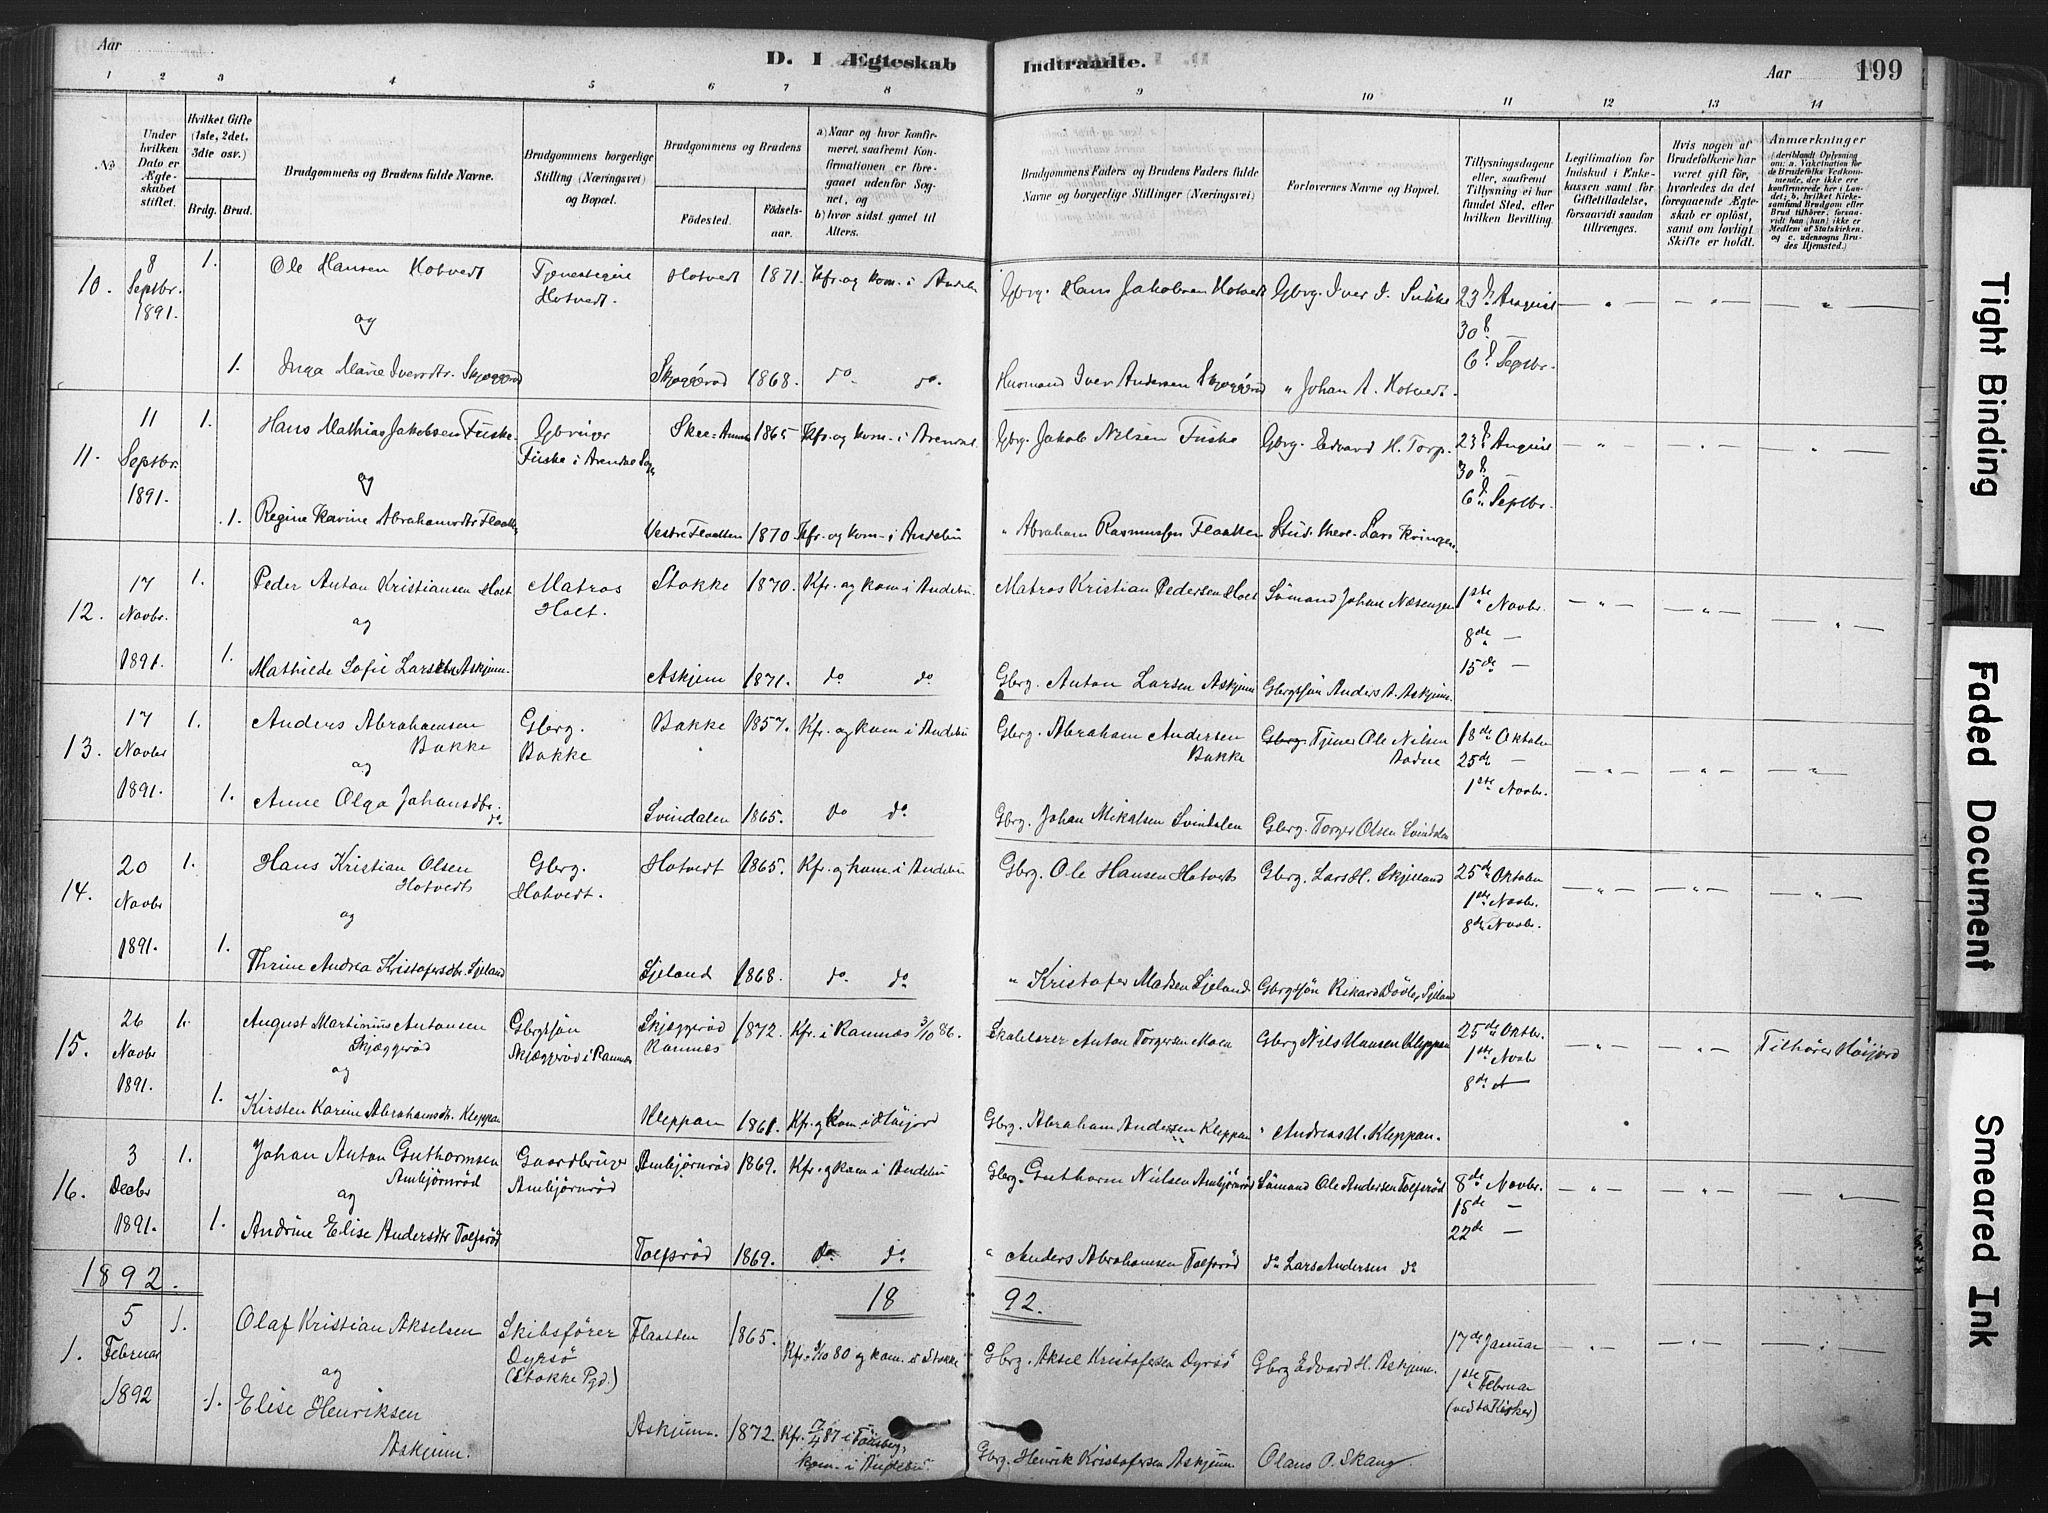 Aar
D. I Ægteskab
Indtraadte.
Aar
199
1 2 3 4 5 6 7 8 9 10 11 12 13 14
No
Under hvilken Dato er Ægteskabet stiftet.
Hvilket Gifte (1ste, 2det, 3die osv.)
Brdg. Brud.
Brudgommens og Brudens fulde Navne.
Brudgommens borgerlige Stilling (Næringsvei) og Bopæl.
Brudgommens og Brudens
Fødested.
Fødselsaar.
a) Naar og hvor konfirmeret, saafremt Konfirmationen er foregaaet udenfor Sognet, og
b) hvor sidst gaaet til Alters.
Brudgommens Faders og Brudens Faders fulde Navne og borgerlige Stillinger (Næringsvei)
Forlovernes Navne og Bopæl.
Tillysningsdagene eller, saafremt Tillysning ei har fundet Sted, efter hvilken Bevilling.
Legitimation for Indskud i Enkekassen samt for Giftetilladelse, forsaavidt saadan tiltrænges.
Hvis nogen af Brudefolkene har været gift før, hvorledes da det foregaaende Ægteskab er opløst, samt om lovligt Skifte er holdt.
Anmærkninger (deriblandt Oplysning om: a. Vakcination for de Brudefolks Vedkommende, der ikke ere konfirmerede her i Landet; b. hvilket Kirkesamfund Brudgom eller Brud tilhører, forsaavidt han (hun) ikke er Medlem af Statskirken, og c. udensogns Brudes Hjemsted.)
10. 8 Septbr. 1891. 1. Ole Hansen Hotvedt Hotvedt. Hotvedt 1871. Kfr. og kom. i Andebu Gbrg. Hans Jakobsen Hotvedt Gbrg. Iver J. Sukke 23d August
og 30d —
1. Inga Marie Iversdtr. Skjøggerød Skjøggerød 1868. do. do. Husmand Iver Andersen Skjøggerød " Johan A. Hotvedt. 6d Septbr.
11. 11 Septbr. 1891. 1. Hans Mathias Jakobsen Fuske Gbruger Fuske i Arendal Sogn 1865 Kfr. og kom. i Arendal Gbrg. Jakob Nilsen Fuske Gbrg. Edvard H. Torp. 23d August
og 30d —
1. Regine Karine Abrahamsdtr Flaatten Vestre Flaatten 1870 Kfr. og kom. i Andebu " Abraham Rasmussen Flaatten Lars 6d Septbr.
12. 17 Novbr. 1891. 1. Peder Anton Kristiansen Holt Matros Holt. Stokke 1870. Kfr. og kom i Andebu. Matros Kristian Pedersen Holt Sømand Johan 1ste Novbr.
og 8de —
1. Mathilde Sofie Larsdtr Askjem. Askjem 1871. do do Gbrg. Anton Larsen Askjem Gbrgsjøn Anders A. Askjem. 15de —
13. 17 Novbr 1891. 1. Anders Abrahamsen Bakke Gbrg. Bakke Bakke 1857. Kfr. og kom i Andebu Gbrg. Abraham Andersen Bakke Tjener Ole Nilsen 18de Oktober
og 25de —
1. Anne Olga Johansdtr. do Svindalen 1865. do do Gbrg. Johan Mikalsen Svindalen Gbrg. Torger Olsen Svindalen 1ste Novbr.
14. 20 Novbr 1891. 1. Hans Kristian Olsen Hotvedt Gbrg. Hotvedt. Hotvedt 1865. Kfr. og kom. i Andebu Gbrg. Ole Hansen Hotvedt Gbrg. Lars H. Skjelland 25de Oktober
og 1ste Novbr.
8de Novbr.
1. Thrine Andrea Kristofersdtr. Sjeland Sjeland 1868. do do " Kristofer Madsen Sjeland Gbrgsjøn Rikard Sjeland
15. 26 Novbr 1891. 1. August Martinius Antonsen Skjæggerød Gbrgsjøn Skjæggerød i Ramnæs Skjæggerød Ramnæs 1872. Kfr. i Ramnæs 3/10 86. Anton Torgersen Moen Gbrg Nils Hansen Kleppan 25de Oktbr. Tilhører Høijord
og 1ste Novbr
8de
1. Kirsten Karine Abrahamsdtr. Kleppan Kleppan 1861. Kfr. og kom. i Høijord Gbrg. Abraham Andersen Kleppan " Andreas H. Kleppan.
16. 3 Decbr 1891. 1. Johan Anton Guthormsen Ambjørnrød Gaardbruger Ambjørnrød Ambjørnrød 1869. Kfr. og kom i Andebu Gbrg. Guthorm Nielsen Ambjørnrød Sømand Ole Andersen Tolfsrød 8de Novbr.
og 15de —
1. Andrine Elise Andersdtr Tolfsrød Tolfsrød 1869. do do " Anders Abrahamsen Tolfsrød do Lars Andersen do 22de —
1892.
18 92.
1. 5 Februar 1892 1. Olaf Kristian Akselsen Skibsfører Dyrsø (Stokke Pgd.) Flaatten 1865. Kfr. 3/10 80 og kom. i Stokke Gbrg. Aksel Kristofersen Dyrsø Gbrg Edvard H. Askjem. 17de Januar
og 1ste Februar
1. Elise Henriksen Askjem. Askjem. 1872. Kfr. 87 i Tønsberg, kom. i Andebu. Gbrg. Henrik Kristofersen Askjem Olaus O. Skaug.
Tight Binding
Faded Document
Smeared Ink